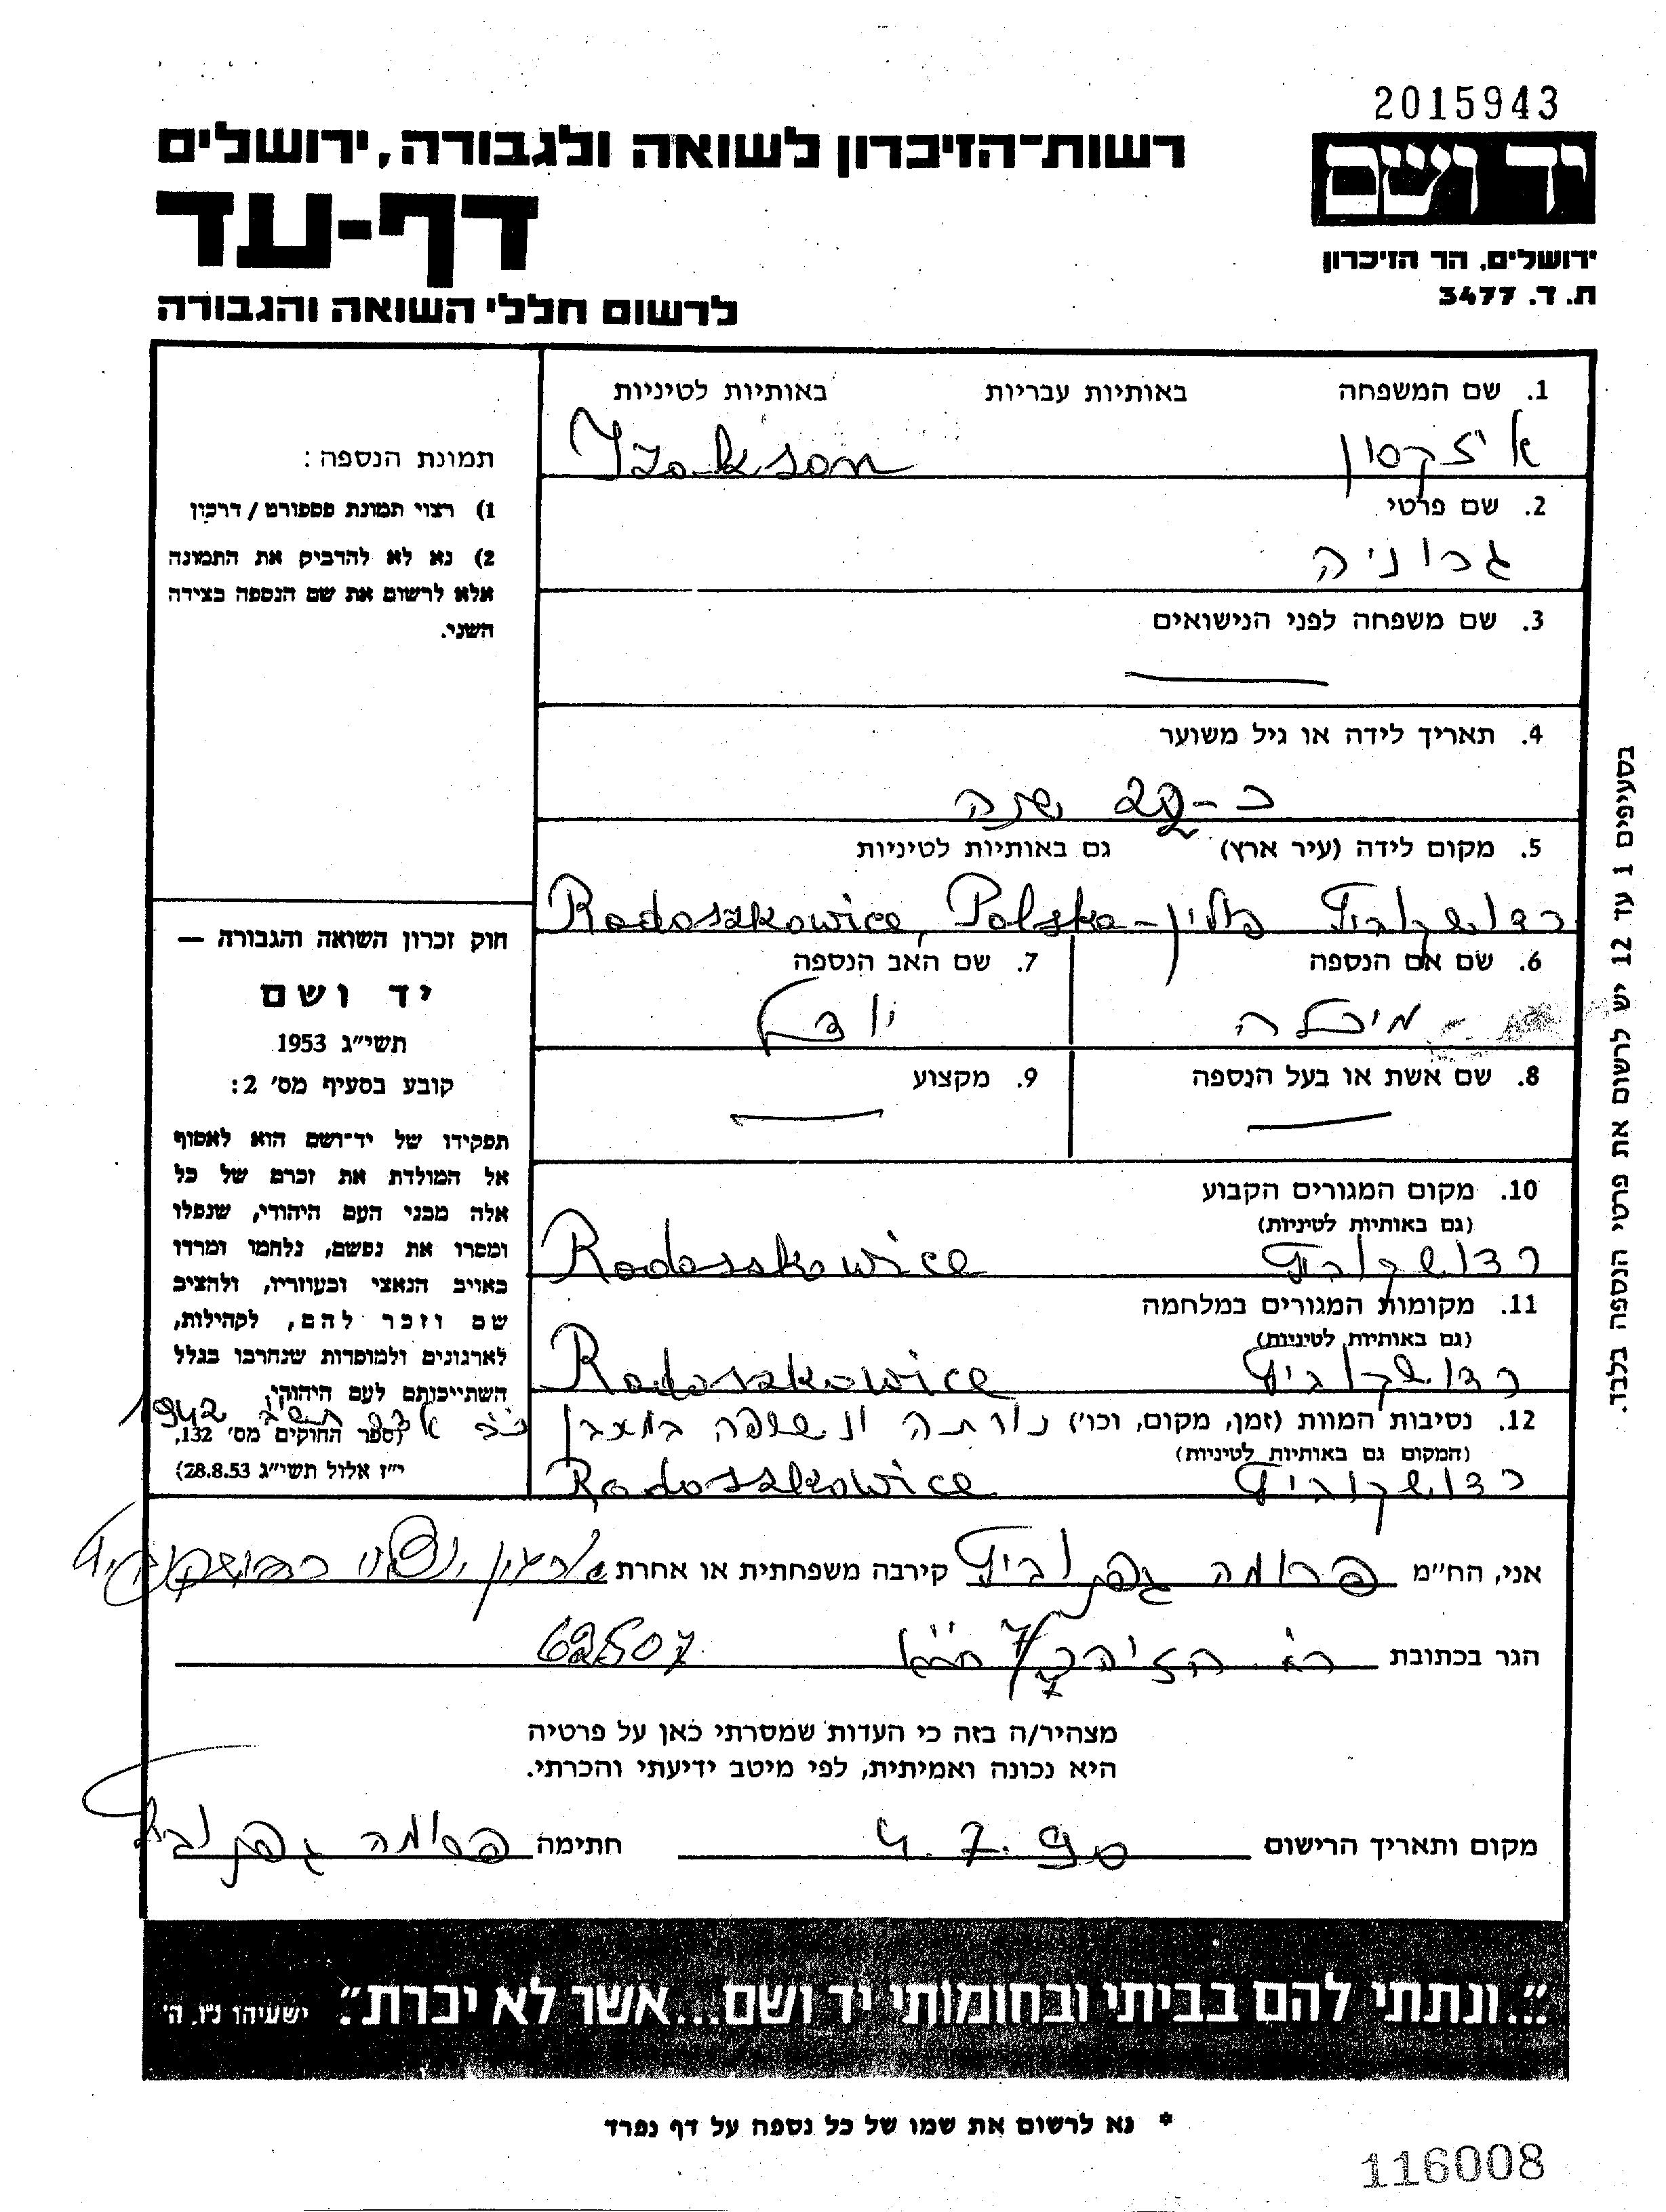 2015943
רשות־הזיכרון לשואה ולגבורה, ירושלים
יד ושם
דף-עד
ירושלים, הר הזיכרון
ת. ד. 3477
לרשום חללי השואה והגבורה
1. שם המשפחה באותיות עבריות באותיות לטיניות
איזקסון Izakson
2. שם פרטי
גרוניה
3. שם משפחה לפני הנישואים
4. תאריך לידה או גיל משוער
כ- שנה
5. מקום לידה (עיר ארץ) גם באותיות לטיניות
רדושקוביץ פולין - Radoszkowice, Polska
6. שם אם הנספה 7. שם האב הנספה
מיכלה יודל
8. שם אשת או בעל הנספה 9. מקצוע
10. מקום המגורים הקבוע
(גם באותיות לטיניות)
רדושקוביץ Radoszkowice
11. מקומות המגורים במלחמה
(גם באותיות לטיניות)
רדושקוביץ Radoszkowice
12. נסיבות המוות (זמן, מקום, וכו') נורתה ונשרפה במתבן 1942
(המקום גם באותיות לטיניות)
רדושקוביץ Radoszkowice
תמונת הנספה:
1) רצוי תמונת פספורט / דרכון
2) נא לא להדביק את התמונה
אלא לרשום את שם הנספה בצידה
השני.
חוק זכרון השואה והגבורה —
יד ושם
תשי״ג 1953
קובע בסעיף מס׳ 2:
תפקידו של יד־ושם הוא לאסוף
אל המולדת את זכרם של כל
אלה מבני העם היהודי, שנפלו
ומסרו את נפשם, נלחמו ומרדו
באויב הנאצי ובעוזריו, ולהציב
שם וזכר להם, לקהילות,
לארגונים ולמוסדות שנחרבו בגלל
השתייכותם לעם היהודי.
(ספר החוקים מס׳ 132,
י״ז אלול תשי״ג 28.8.53)
בסעיפים 1 עד 12 יש לרשום את פרטי הנספה בלבד.
אני, הח״מ פרומה גפנוביץ קירבה משפחתית או אחרת ארגון יוצאי רדושקוביץ
הגר בכתובת 62507
מצהיר/ה בזה כי העדות שמסרתי כאן על פרטיה
היא נכונה ואמיתית, לפי מיטב ידיעתי והכרתי.
מקום ותאריך הרישום 4.7.90 חתימה פרומה גפנוביץ
״...ונתתי להם בביתי ובחומותי יד ושם...אשר לא יכרת״. ישעיהו נ״ו, ה׳
* נא לרשום את שמו של כל נספה על דף נפרד
116008